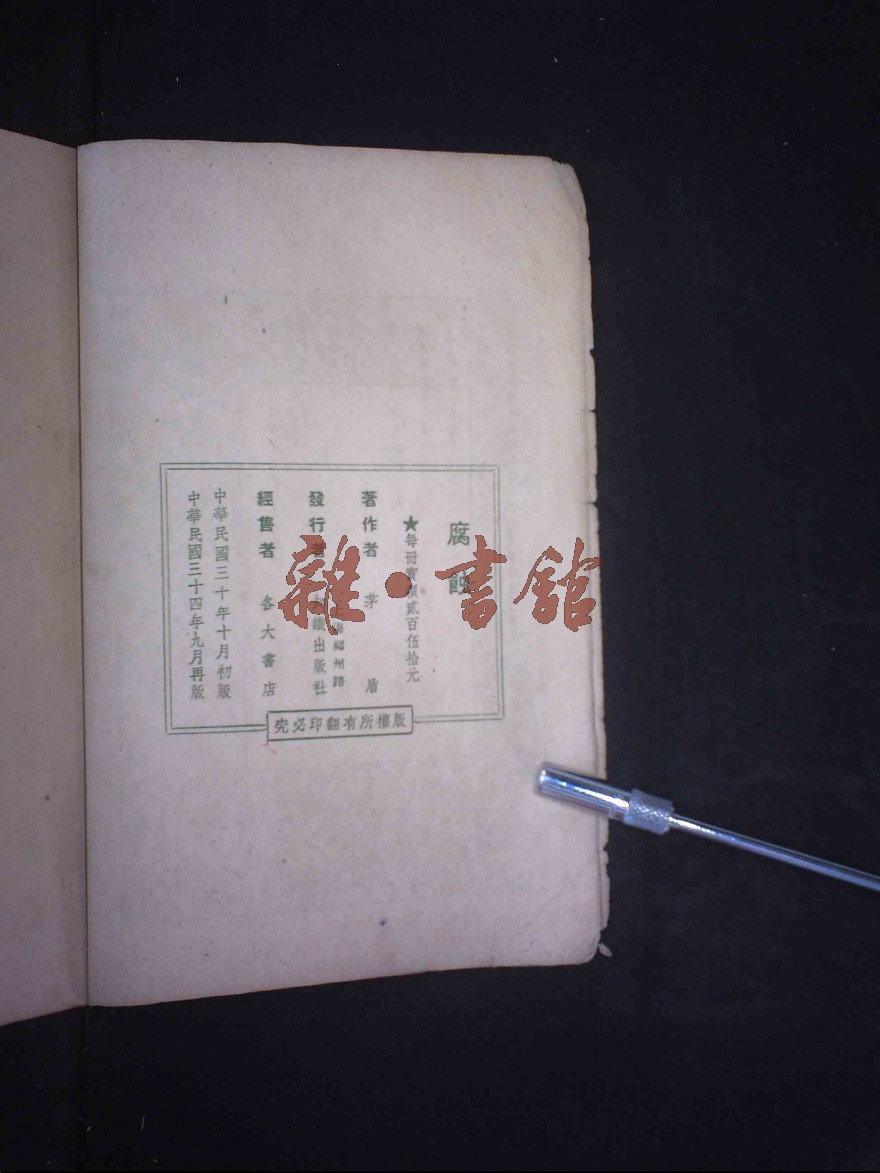 腐蝕
★每冊實價貳百伍拾元
著作者 茅盾
發行者 出版社
福州路
經售者 各大書店
中華民國三十年十月初版
中華民國三十四年九月再版
版權所有翻印必究
雜·書館